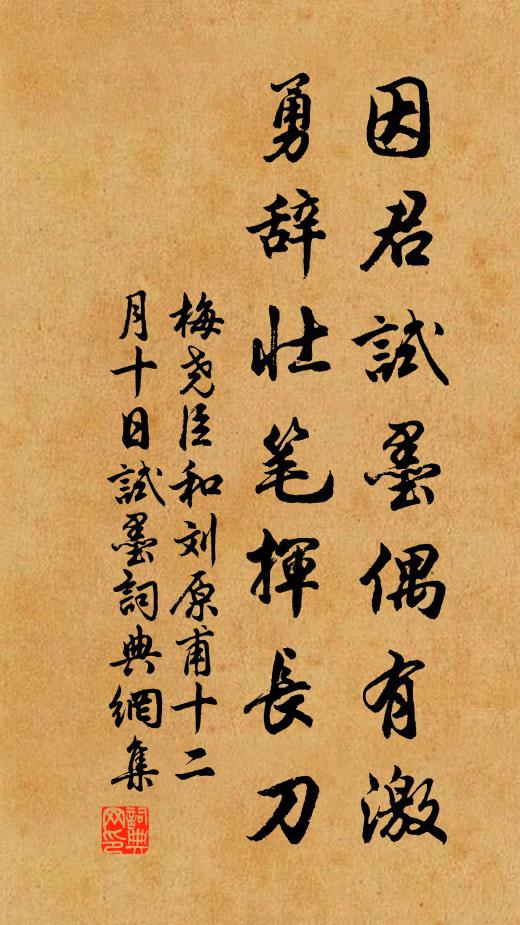 因君試墨偶有激
勇辞壮笔揮長刀
梅尧臣和刘原甫十二
月十日試墨詞典網集
詞典网印